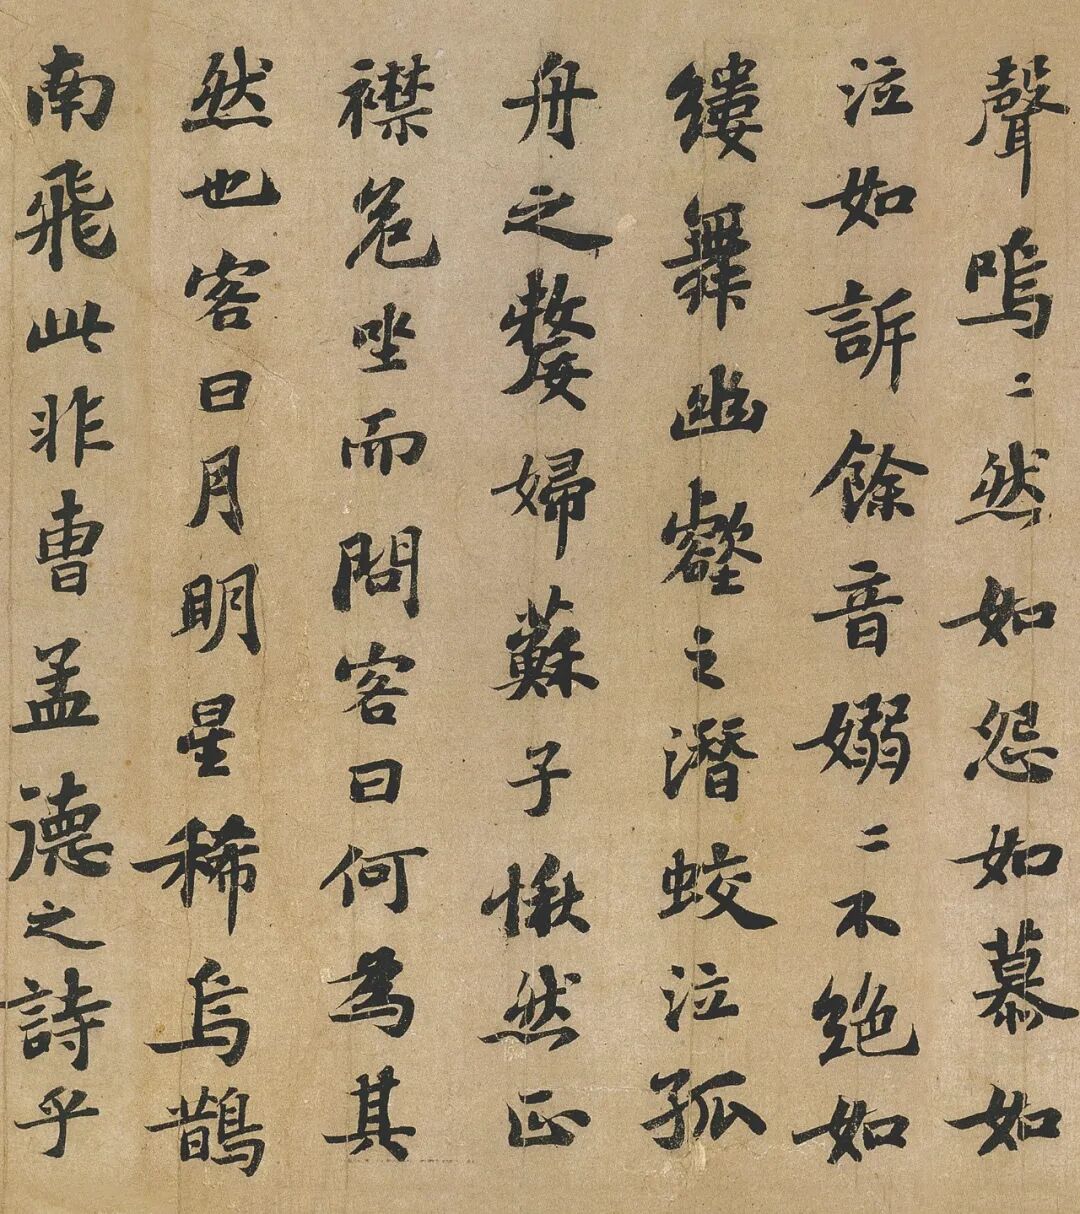 聲嗚〻然如怨如慕如
泣如訴餘音嫋〻不絕如
縷舞幽壑之潛蛟泣孤
舟之嫠婦蘇子愀然正
襟危坐而問客曰何為其
然也客曰月明星稀烏鵲
南飛此非曹孟德之詩乎